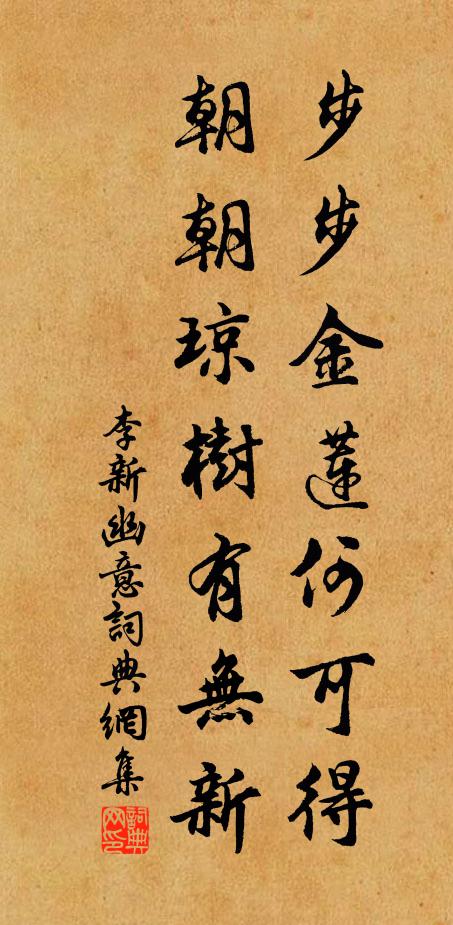 步步金蓮何可得
朝朝琼樹有無新
李新幽意詞典網集
詞典
网印